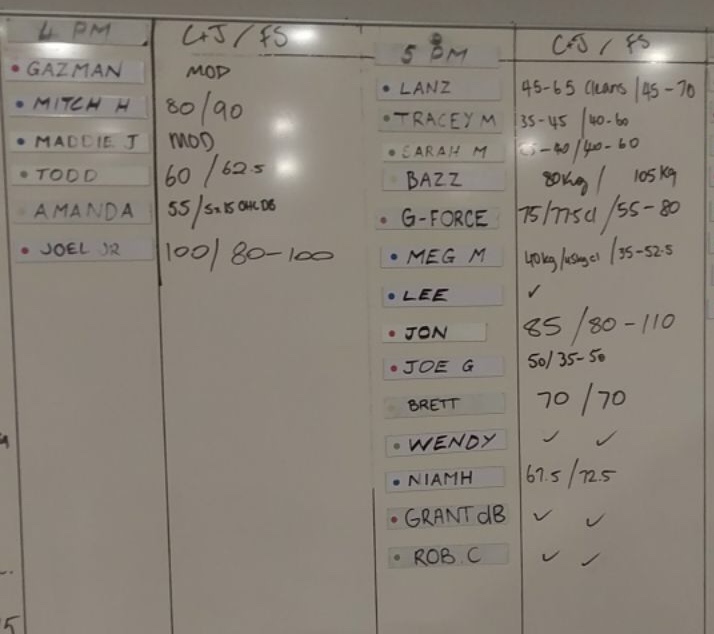 4 PM C+J / FS
GAZMAN MOD
MITCH H 80/90
MADDIE J MOD
TODD 60/62.5
AMANDA 55/5x15 OHL DB
JOEL JR 100/80-100
5 PM C+J / FS
LANZ 45-65 Cleans / 45-70
TRACEY M 35-45 / 40-60
SARAH M -40/40-60
BAZZ 80kg / 105kg
G-FORCE 75/77.5cl / 55-80
MEG M 40kg/45kgcl / 35-52.5
LEE ✓
JON 85 / 80-110
JOE G 50/35-50
BRETT 70/70
WENDY ✓ ✓
NIAMH 67.5/72.5
GRANT dB ✓ ✓
ROB.C ✓ ✓